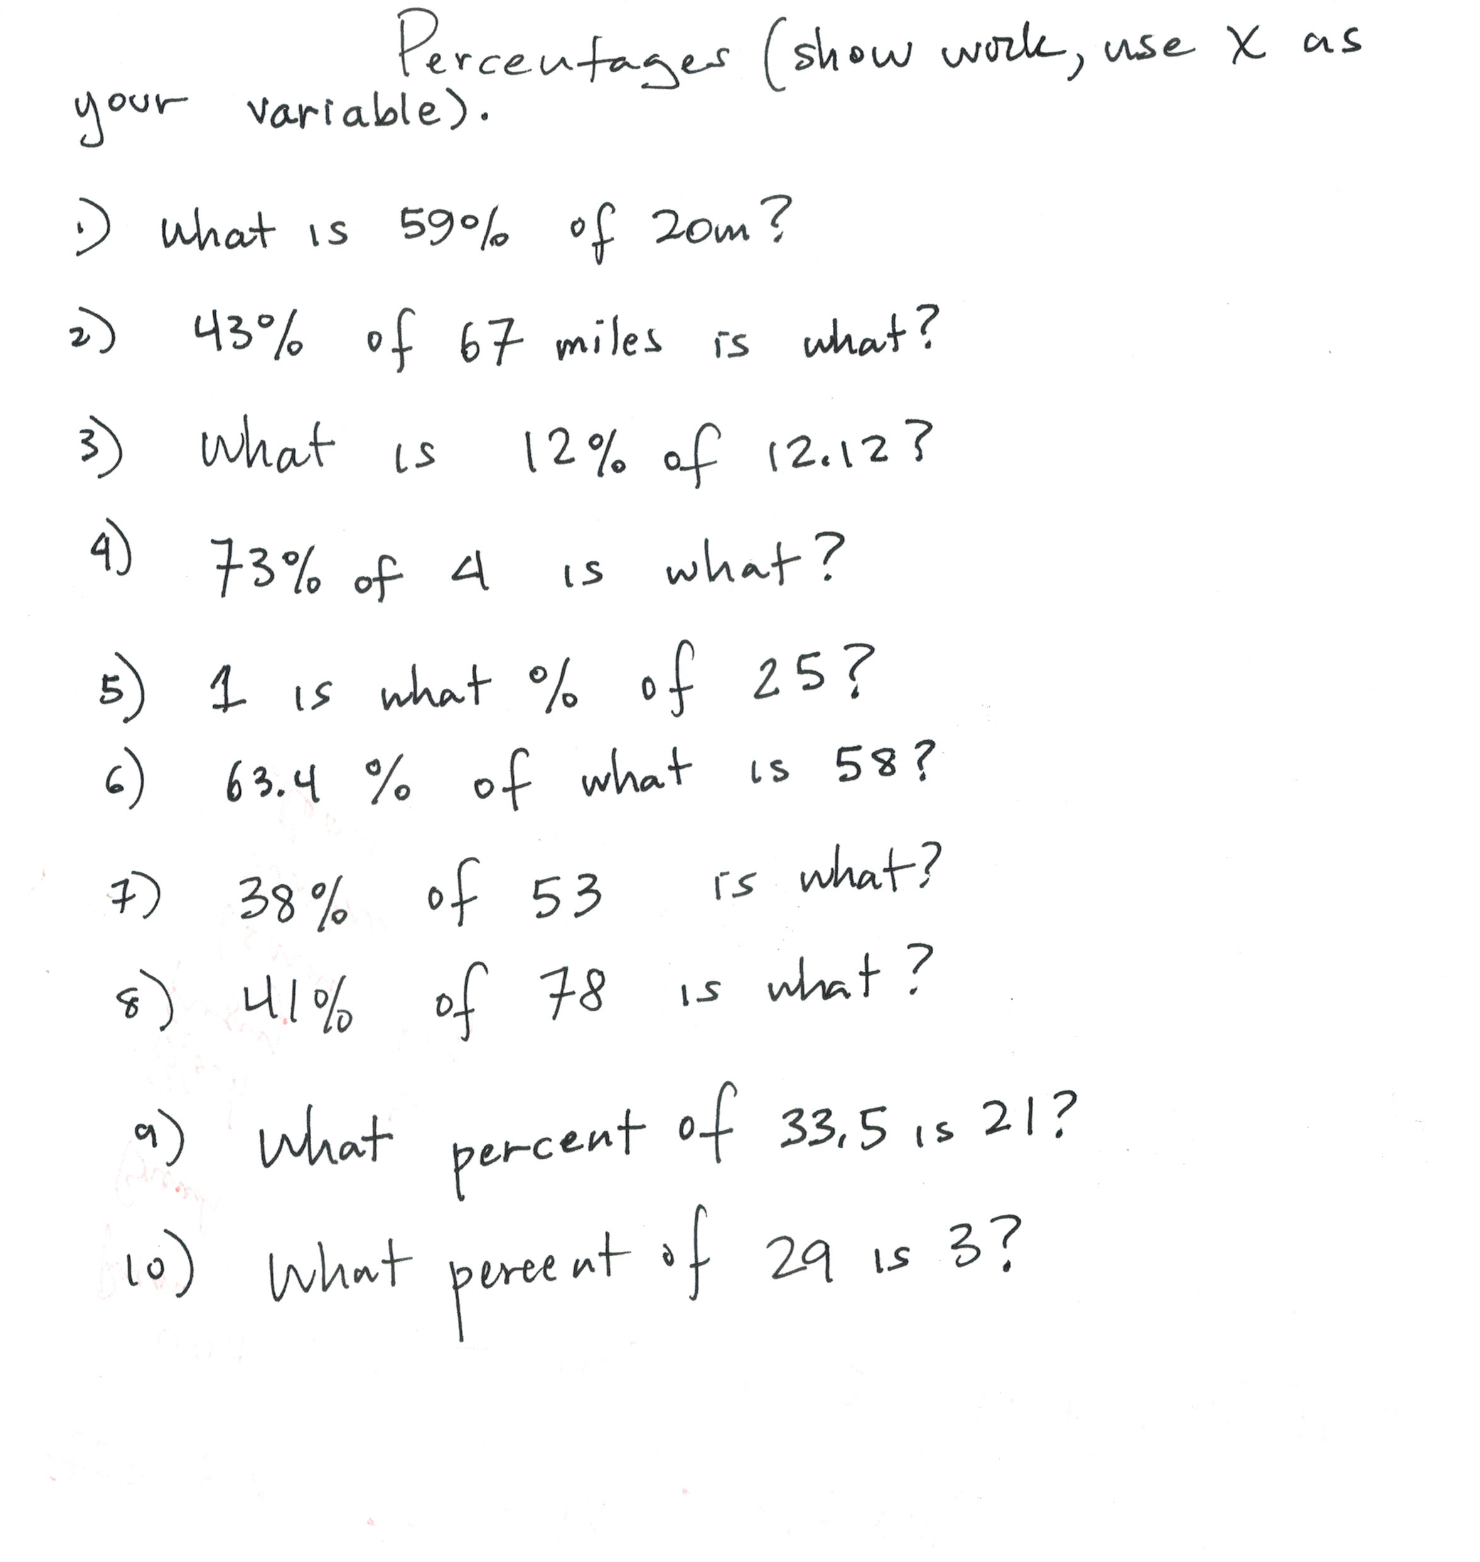 Percentages (show work, use x as
your variable).
1) What is 59% of 20m?
2) 43% of 67 miles is what?
3) What is 12% of 12.12?
4) 73% of 4 is what?
5) 1 is what % of 25?
6) 63.4 % of what is 58?
7) 38% of 53 is what?
8) 41% of 78 is what?
9) What percent of 33.5 is 21?
10) What percent of 29 is 3?